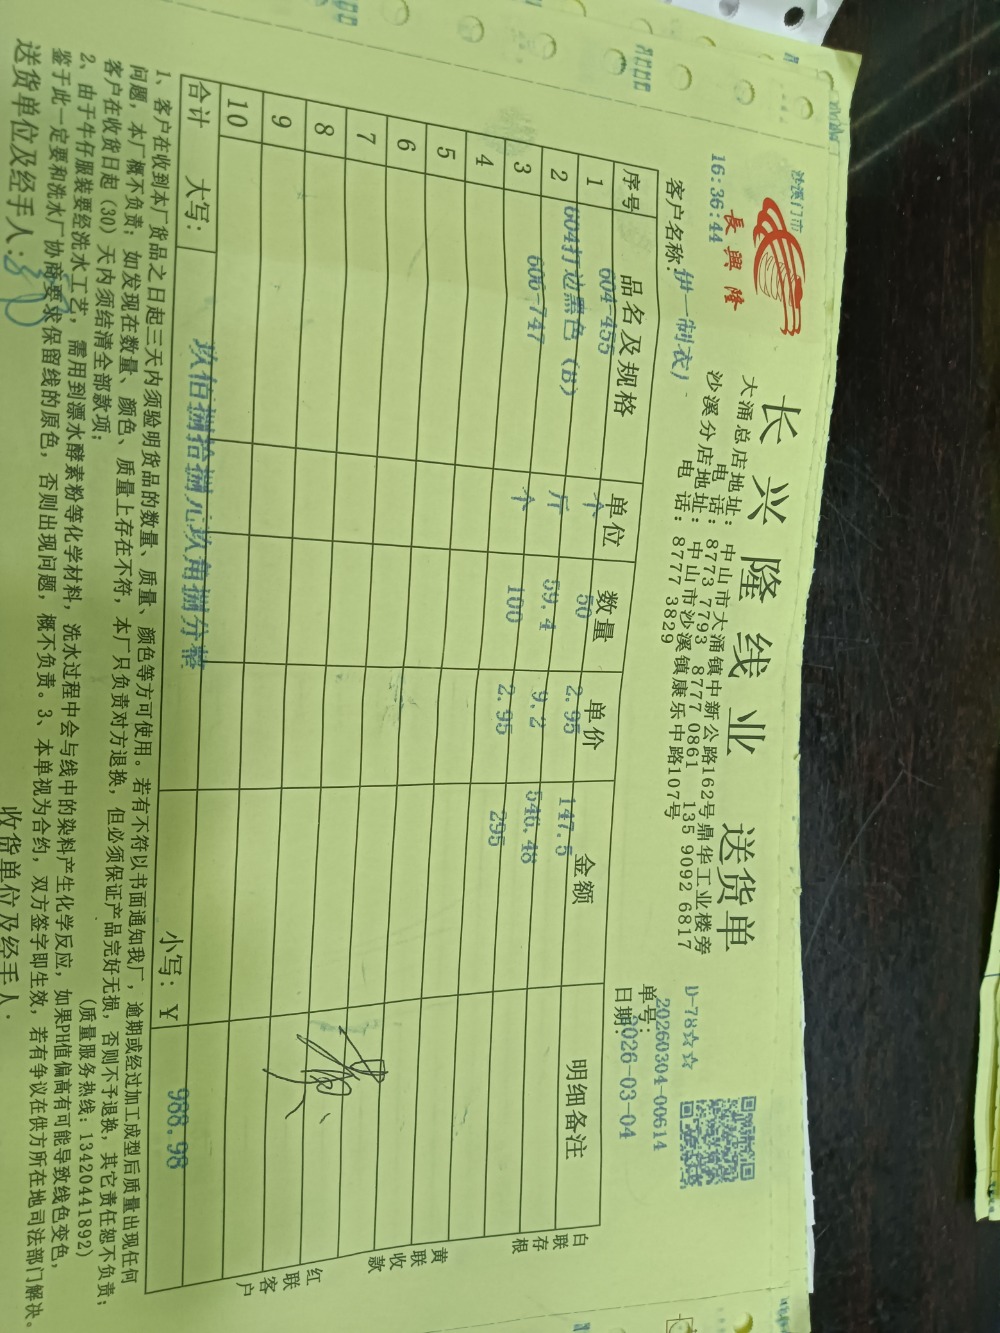 沙溪门市
16:36:44
長興隆
长兴隆线业 送货单
大涌总店地址: 中山市大涌镇中新公路162号鼎华工业楼旁
电 话: 8773 7793 8777 0861 135 9092 6817
沙溪分店地址: 中山市沙溪镇康乐中路107号
电 话: 8777 3829
D-78☆☆
单号: 20260304-00614
日期: 2026-03-04
客户名称: 伊一制衣)
序号 品名及规格 单位 数量 单价 金额 明细备注
1 604-455 个 50 2.95 147.5
2 604打边黑色 (B) 斤 59.4 9.2 546.48
3 606-747 个 100 2.95 295
4
5
6
7
8
9
10
合计 大写: 玖佰捌拾捌元玖角捌分整 小写: ¥ 988.98
白联存根
黄联收款
红联客户
1、客户在收到本厂货品之日起三天内须验明货品的数量、质量、颜色等方可使用。若有不符以书面通知我厂，逾期或经过加工成型后质量出现任何
问题，本厂概不负责；如发现在数量、颜色、质量上存在不符，本厂只负责对方退换，但必须保证产品完好无损，否则不予退换，其它责任恕不负责；
客户在收货日起（30）天内须结清全部款项；
(质量服务热线: 13420441892)
2、由于牛仔服装要经洗水工艺，需用到漂水酵素粉等化学材料，洗水过程中会与线中的染料产生化学反应，如果PH值偏高有可能导致线色变色，
鉴于此一定要和洗水厂协商要求保留线的原色，否则出现问题，概不负责。3、本单视为合约，双方签字即生效，若有争议在供方所在地司法部门解决。
送货单位及经手人:
收货单位及经手人: